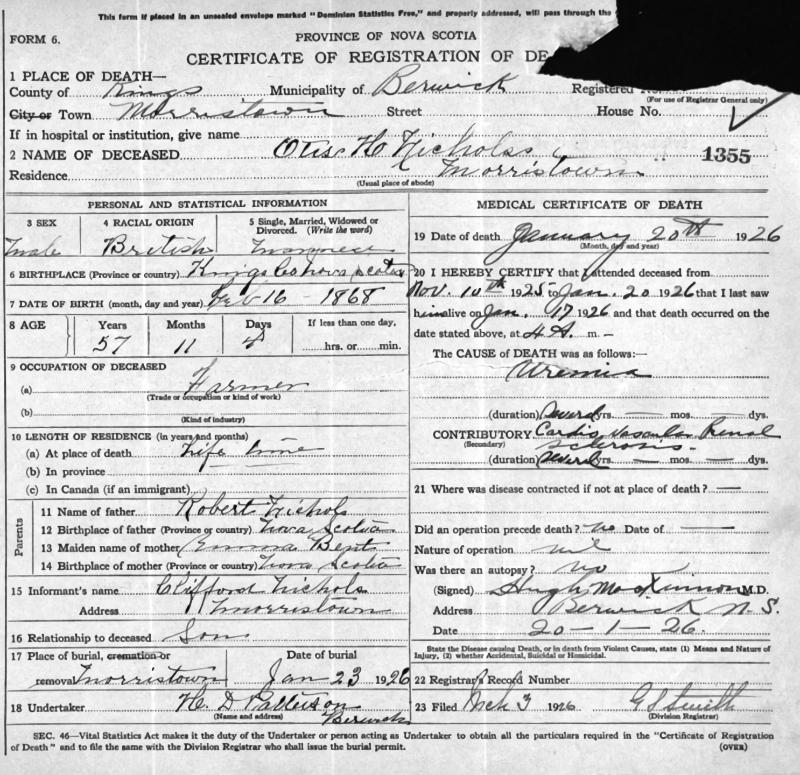 This form if placed in an unsealed envelope marked "Dominion Statistics Free," and properly addressed, will pass through the
FORM 6.
PROVINCE OF NOVA SCOTIA
CERTIFICATE OF REGISTRATION OF DEA
1 PLACE OF DEATH—
County of Kings Municipality of Berwick Registered No.
(For use of Registrar General only)
City or Town Morristown Street House No.
If in hospital or institution, give name
2 NAME OF DECEASED Otis H Nichols
1355
Residence Morristown
(Usual place of abode)
PERSONAL AND STATISTICAL INFORMATION
3 SEX 4 RACIAL ORIGIN 5 Single, Married, Widowed or Divorced. (Write the word)
Male British
6 BIRTHPLACE (Province or country) Kings Co Nova Scotia
7 DATE OF BIRTH (month, day and year) Feb 16 - 1868
8 AGE Years Months Days If less than one day,
57 11 4 hrs. or min.
9 OCCUPATION OF DECEASED
(a) Farmer
(Trade or occupation or kind of work)
(b)
(Kind of industry)
10 LENGTH OF RESIDENCE (in years and months)
(a) At place of death Life time
(b) In province
(c) In Canada (if an immigrant)
Parents
11 Name of father Robert Nichols
12 Birthplace of father (Province or country) Nova Scotia
13 Maiden name of mother Emma Bent
14 Birthplace of mother (Province or country) Nova Scotia
15 Informant's name Clifford Nichols
Address Morristown
16 Relationship to deceased Son
17 Place of burial, cremation or Date of burial
removal Morristown Jan 23 1926
18 Undertaker H. D Patterson
(Name and address) Berwick
MEDICAL CERTIFICATE OF DEATH
19 Date of death January 20th 1926
(Month, day and year)
20 I HEREBY CERTIFY that I attended deceased from
Nov. 10th 1925 to Jan. 20 1926 that I last saw
him alive on Jan. 17 1926 and that death occurred on
date stated above, at 4 A. m.—
The CAUSE OF DEATH was as follows:—
Uremia
(duration) Several yrs. — mos. — dys.
CONTRIBUTORY Cardio Vascular Renal
(Secondary) sclerosis.
(duration) Several yrs. — mos. — dys.
21 Where was disease contracted if not at place of death? —
Did an operation precede death? no Date of —
Nature of operation nil
Was there an autopsy? no
(Signed) Hugh MacKinnon M.D.
Address Berwick N.S.
Date 20-1-26.
State the Disease causing Death, or in death from Violent Causes, state (1) Means and Nature of
Injury, (2) whether Accidental, Suicidal or Homicidal.
22 Registrar's Record Number
23 Filed Mch 3 1926 G S Smith
(Division Registrar)
SEC. 46—Vital Statistics Act makes it the duty of the Undertaker or person acting as Undertaker to obtain all the particulars required in the "Certificate of Registration
of Death" and to file the same with the Division Registrar who shall issue the burial permit. (OVER)